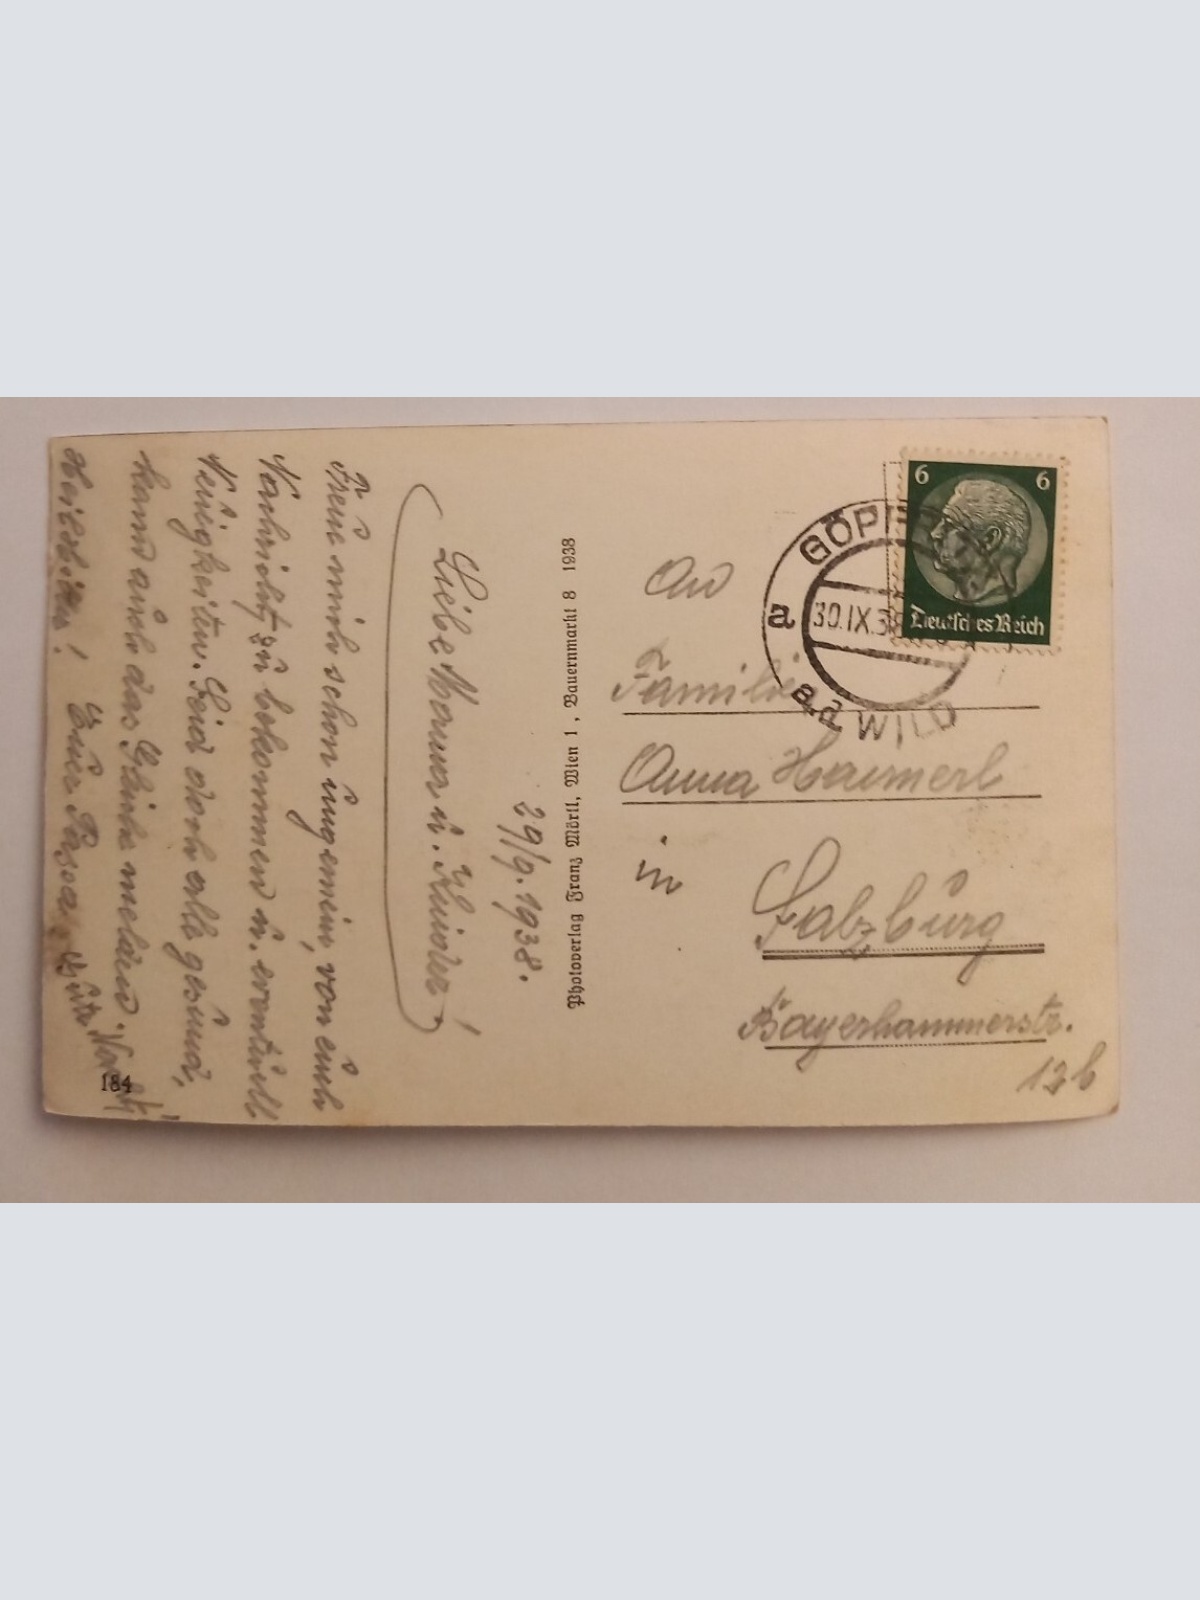 29/9. 1938.
Liebe Mama u. Kinder!
Freue mich schon ungemein, von euch
Nachricht zu bekommen u. eventuell
Neuigkeiten. Seid doch alle gesund,
kann auch das Gleiche melden.
Euer Papa
184
Photoverlag Franz Mörtl, Wien 1, Bauernmarkt 8 1938
6 6
Deutsches Reich
GÖPF
a 30.IX.38
a.d. WILD
An
Familie
Anna Haimerl
in
Salzburg
Bayerhammerstr.
12b